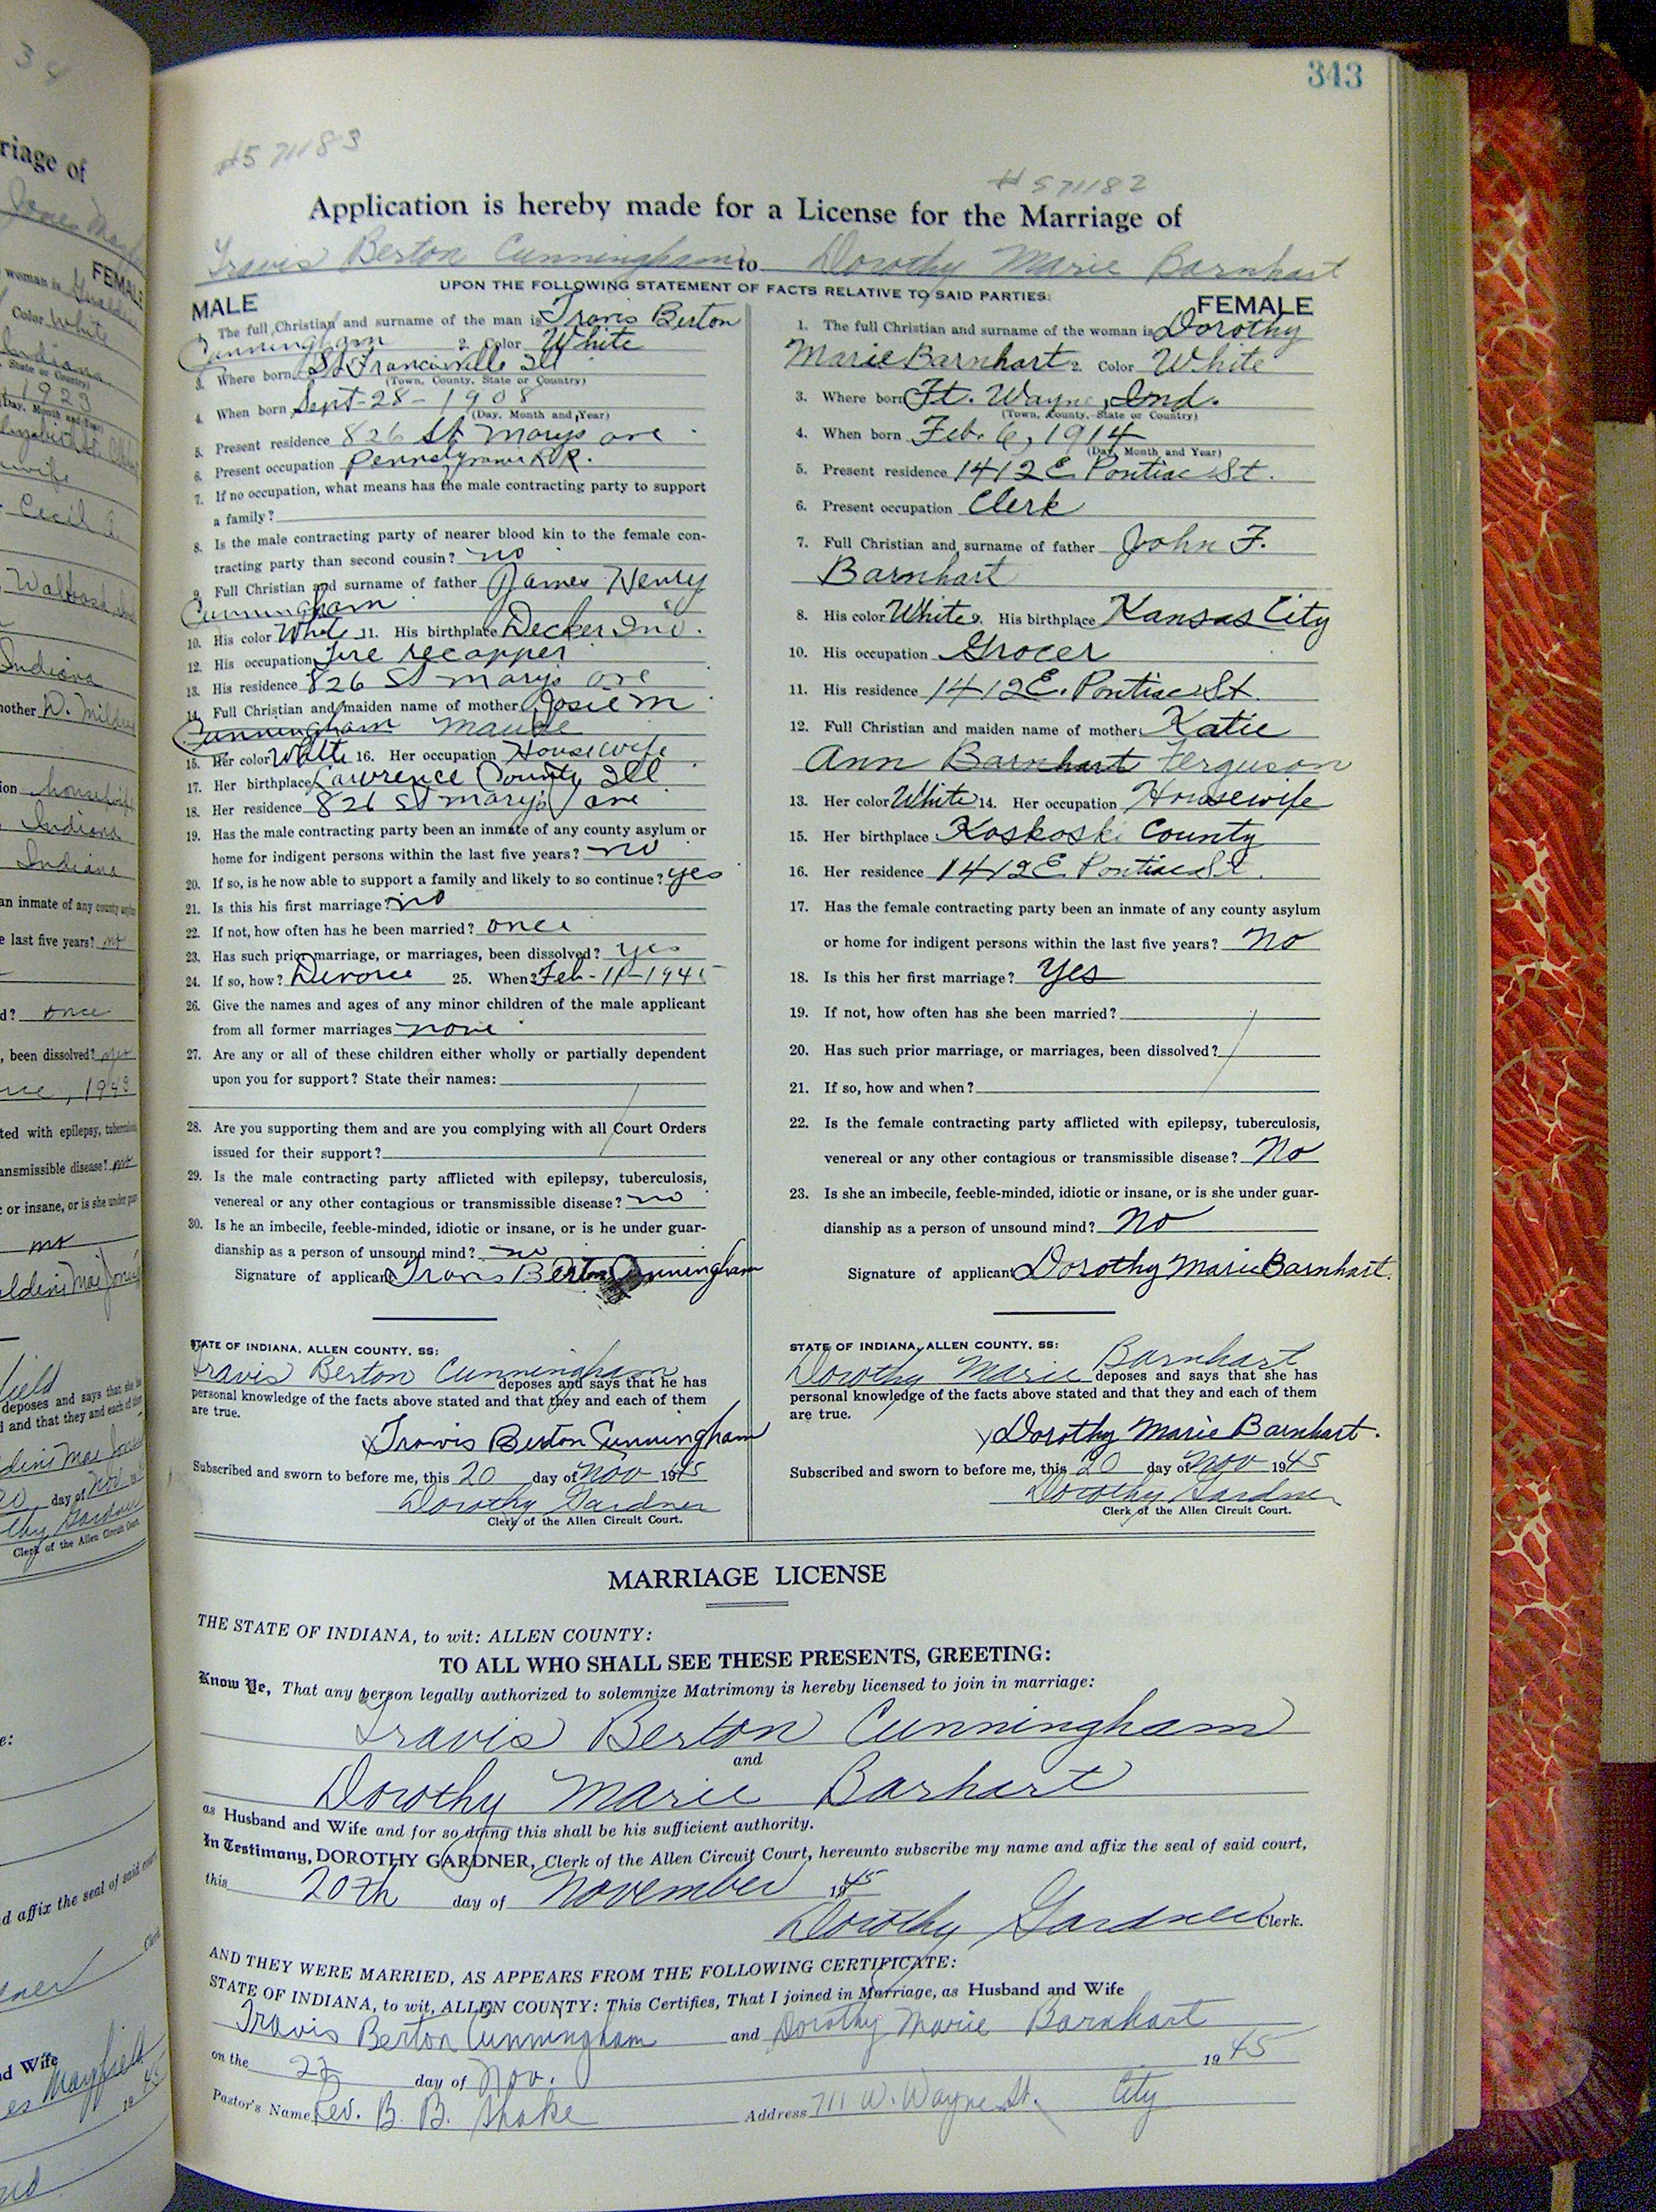 343
34
#571183
#571182
riage of
Application is hereby made for a License for the Marriage of
Travis Berton Cunningham to Dorothy Marie Barnhart
UPON THE FOLLOWING STATEMENT OF FACTS RELATIVE TO SAID PARTIES:
MALE
1. The full Christian and surname of the man is Travis Berton
Cunningham 2. Color White
3. Where born St Francisville Ill
(Town, County, State or Country)
4. When born Sept-28-1908
(Day, Month and Year)
5. Present residence 826 St Marys ave
6. Present occupation Pennsylvania R.R.
7. If no occupation, what means has the male contracting party to support
a family?
8. Is the male contracting party of nearer blood kin to the female con-
tracting party than second cousin? no
9. Full Christian and surname of father James Henry
Cunningham
10. His color White 11. His birthplace Decker Ind.
12. His occupation Tire recapper
13. His residence 826 St Marys ave
14. Full Christian and maiden name of mother Josie M
Cunningham Maude
15. Her color White 16. Her occupation Housewife
17. Her birthplace Lawrence County Ill
18. Her residence 826 St Marys ave
19. Has the male contracting party been an inmate of any county asylum or
home for indigent persons within the last five years? no
20. If so, is he now able to support a family and likely to so continue? yes
21. Is this his first marriage? no
22. If not, how often has he been married? once
23. Has such prior marriage, or marriages, been dissolved? yes
24. If so, how? Divorce 25. When? Feb-11-1945
26. Give the names and ages of any minor children of the male applicant
from all former marriages none
27. Are any or all of these children either wholly or partially dependent
upon you for support? State their names:
28. Are you supporting them and are you complying with all Court Orders
issued for their support?
29. Is the male contracting party afflicted with epilepsy, tuberculosis,
venereal or any other contagious or transmissible disease? no
30. Is he an imbecile, feeble-minded, idiotic or insane, or is he under guar-
dianship as a person of unsound mind? no
Signature of applicant Travis Berton Cunningham
STATE OF INDIANA, ALLEN COUNTY, SS:
Travis Berton Cunningham deposes and says that he has
personal knowledge of the facts above stated and that they and each of them
are true.
X Travis Berton Cunningham
Subscribed and sworn to before me, this 20 day of Nov 1945
Dorothy Gardner
Clerk of the Allen Circuit Court.
FEMALE
1. The full Christian and surname of the woman is Dorothy
Marie Barnhart 2. Color White
3. Where born Ft. Wayne, Ind.
(Town, County, State or Country)
4. When born Feb. 6, 1914
(Day, Month and Year)
5. Present residence 1412 E Pontiac St.
6. Present occupation Clerk
7. Full Christian and surname of father John F.
Barnhart
8. His color White 9. His birthplace Kansas City
10. His occupation Grocer
11. His residence 1412 E. Pontiac St.
12. Full Christian and maiden name of mother Katie
Ann Barnhart Ferguson
13. Her color White 14. Her occupation Housewife
15. Her birthplace Koskoski County
16. Her residence 1412 E. Pontiac St.
17. Has the female contracting party been an inmate of any county asylum
or home for indigent persons within the last five years? no
18. Is this her first marriage? Yes
19. If not, how often has she been married?
20. Has such prior marriage, or marriages, been dissolved?
21. If so, how and when?
22. Is the female contracting party afflicted with epilepsy, tuberculosis,
venereal or any other contagious or transmissible disease? No
23. Is she an imbecile, feeble-minded, idiotic or insane, or is she under guar-
dianship as a person of unsound mind? No
Signature of applicant Dorothy Marie Barnhart.
STATE OF INDIANA, ALLEN COUNTY, SS:
Dorothy Marie Barnhart deposes and says that she has
personal knowledge of the facts above stated and that they and each of them
are true.
X Dorothy Marie Barnhart.
Subscribed and sworn to before me, this 20 day of Nov 1945
Dorothy Gardner
Clerk of the Allen Circuit Court.
MARRIAGE LICENSE
THE STATE OF INDIANA, to wit: ALLEN COUNTY:
TO ALL WHO SHALL SEE THESE PRESENTS, GREETING:
Know Ye, That any person legally authorized to solemnize Matrimony is hereby licensed to join in marriage:
Travis Berton Cunningham
and
Dorothy Marie Barhart
as Husband and Wife and for so doing this shall be his sufficient authority.
In Testimony, DOROTHY GARDNER, Clerk of the Allen Circuit Court, hereunto subscribe my name and affix the seal of said court,
this 20th day of November 1945
Dorothy Gardner Clerk.
AND THEY WERE MARRIED, AS APPEARS FROM THE FOLLOWING CERTIFICATE:
STATE OF INDIANA, to wit, ALLEN COUNTY: This Certifies, That I joined in Marriage, as Husband and Wife
Travis Berton Cunningham and Dorothy Marie Barnhart
on the 22 day of Nov. 1945
Pastor's Name Rev. B. B. Shake Address 711 W. Wayne St. City